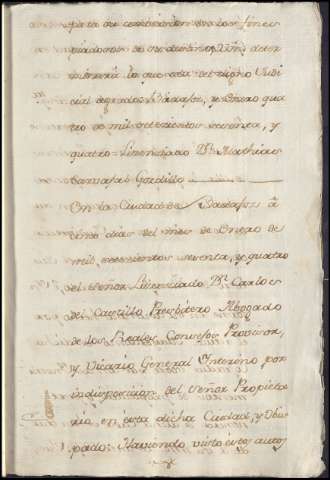 piadosos de su
minará lo que sea del
cial agrado: Badajoz, y Enero qua
tro de mil setecientos setenta, y
quatro = Licenciado Dn. Mathias
Carvajal Gordillo
En la Ciudad de Badajoz á
dias del mes de Enero de
mil, setecientos setenta, y quatro
el Señor Licenciado Dn. Carlos
del Castillo Presbitero Abogado
de los Reales Consejos Provisor,
y Vicario General Interino por
indisposicion del Señor Propieta
rio, en esta dicha Ciudad, y Obis
pado: Haviendo visto estos autos